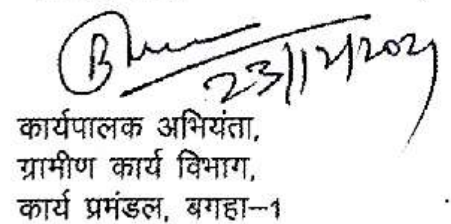 23/12/2021
कार्यपालक अभियंता,
ग्रामीण कार्य विभाग,
कार्य प्रमंडल, बगहा–1